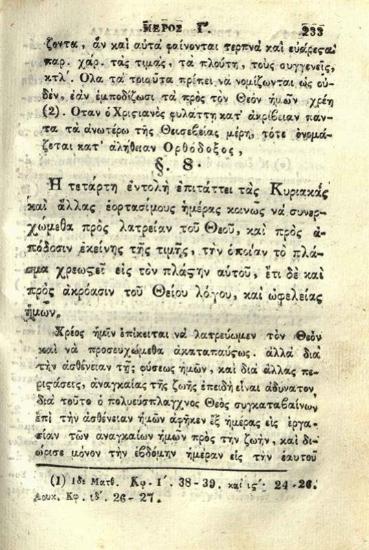 ΜΕΡΟΣ Γ΄. 233
ζοντα, ἂν καὶ αὐτὰ φαίνονται τερπνὰ καὶ εὐάρεςα
παρ. χάρ. τὰς τιμὰς, τὰ πλούτη, τοὺς συγγενεῖς,
κτλ΄. Ὅλα τὰ τοιοῦτα πρέπει νὰ νομίζωνται ὡς οὐ-
δὲν, ἐὰν ἐμποδίζωσι τὰ πρὸς τὸν Θεὸν ἡμῶν χρέη
(2). Ὅταν ὁ Χριςιανὸς φυλάττῃ κατ' ἀκρίβειαν πάν-
τα τὰ ἀνωτέρω τῆς Θεισεβείας μέρη, τότε ὀνομά-
ζεται κατ' ἀλήθειαν Ὀρθόδοξος,
§. 8.
Ἡ τετάρτη ἐντολὴ ἐπιτάττει τὰς Κυριακὰς
καὶ ἄλλας ἑορτασίμους ἡμέρας κοινῶς νὰ συνερ-
χώμεθα πρὸς λατρείαν τοῦ Θεοῦ, καὶ πρὸς ἀ-
πόδοσιν ἐκείνης τῆς τιμῆς, τὴν ὁποίαν τὸ πλά-
σμα χρεωςεῖ εἰς τὸν πλάςην αὐτοῦ, ἔτι δὲ καὶ
πρὸς ἀκρόασιν τοῦ Θείου λόγου, καὶ ὠφελείας
ἡμων.
Χρέος ἡμῖν ἐπίκειται νὰ λατρεύωμεν τὸν Θεὸν
καὶ νὰ προσευχώμεθα ἀκαταπαύςως. ἀλλὰ διὰ
τὴν ἀσθένειαν τῆς φύσεως ἡμῶν, καὶ διὰ ἄλλας πε-
ριςάσεις, ἀναγκαίας τῆς ζωῆς ἐπειδὴ εἶναι ἀδύνατον,
διὰ τοῦτο ὁ πολυεύσπλαγχνος Θεὸς συγκαταβαίνων
ἐπὶ τὴν ἀσθένειαν ἡμῶν ἀφῆκεν ἓξ ἡμέρας εἰς ἐργα-
σίαν τῶν ἀναγκαίων ἡμων πρὸς τὴν ζωὴν, καὶ δι-
ώρισε μόνον τὴν ἑβδόμην ἡμέραν εἰς τὴν ἑαυτοῦ
(1) Ἰδὲ Ματθ. Κφ. Ι΄. 38-39. καὶ ις΄: 24-26.
Λουκ. Κφ. ιδ΄. 26-27.